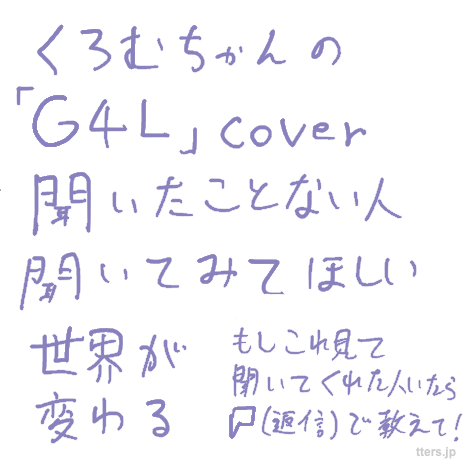 くろむちゃんの
「G4L」cover
聞いたことない人
聞いてみてほしい
世界が
変わる
もしこれ見て
聞いてくれた人いたら
(返信)で教えて!
tters.jp